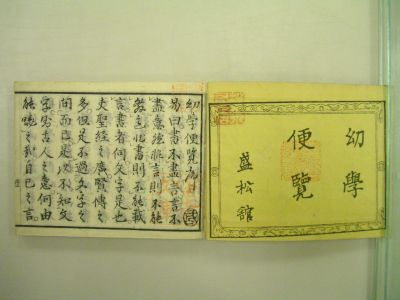 幼學
便覽
盛松舘
幼学便覧序
易曰書不盡言言不
盡意然非言則不能
教意非書則不能載
言書者何文字是也
夫聖経之廣賢傳之
多但是不過文字之
間而已是以不知文
字労古人之意何由
能暁之我自己之言